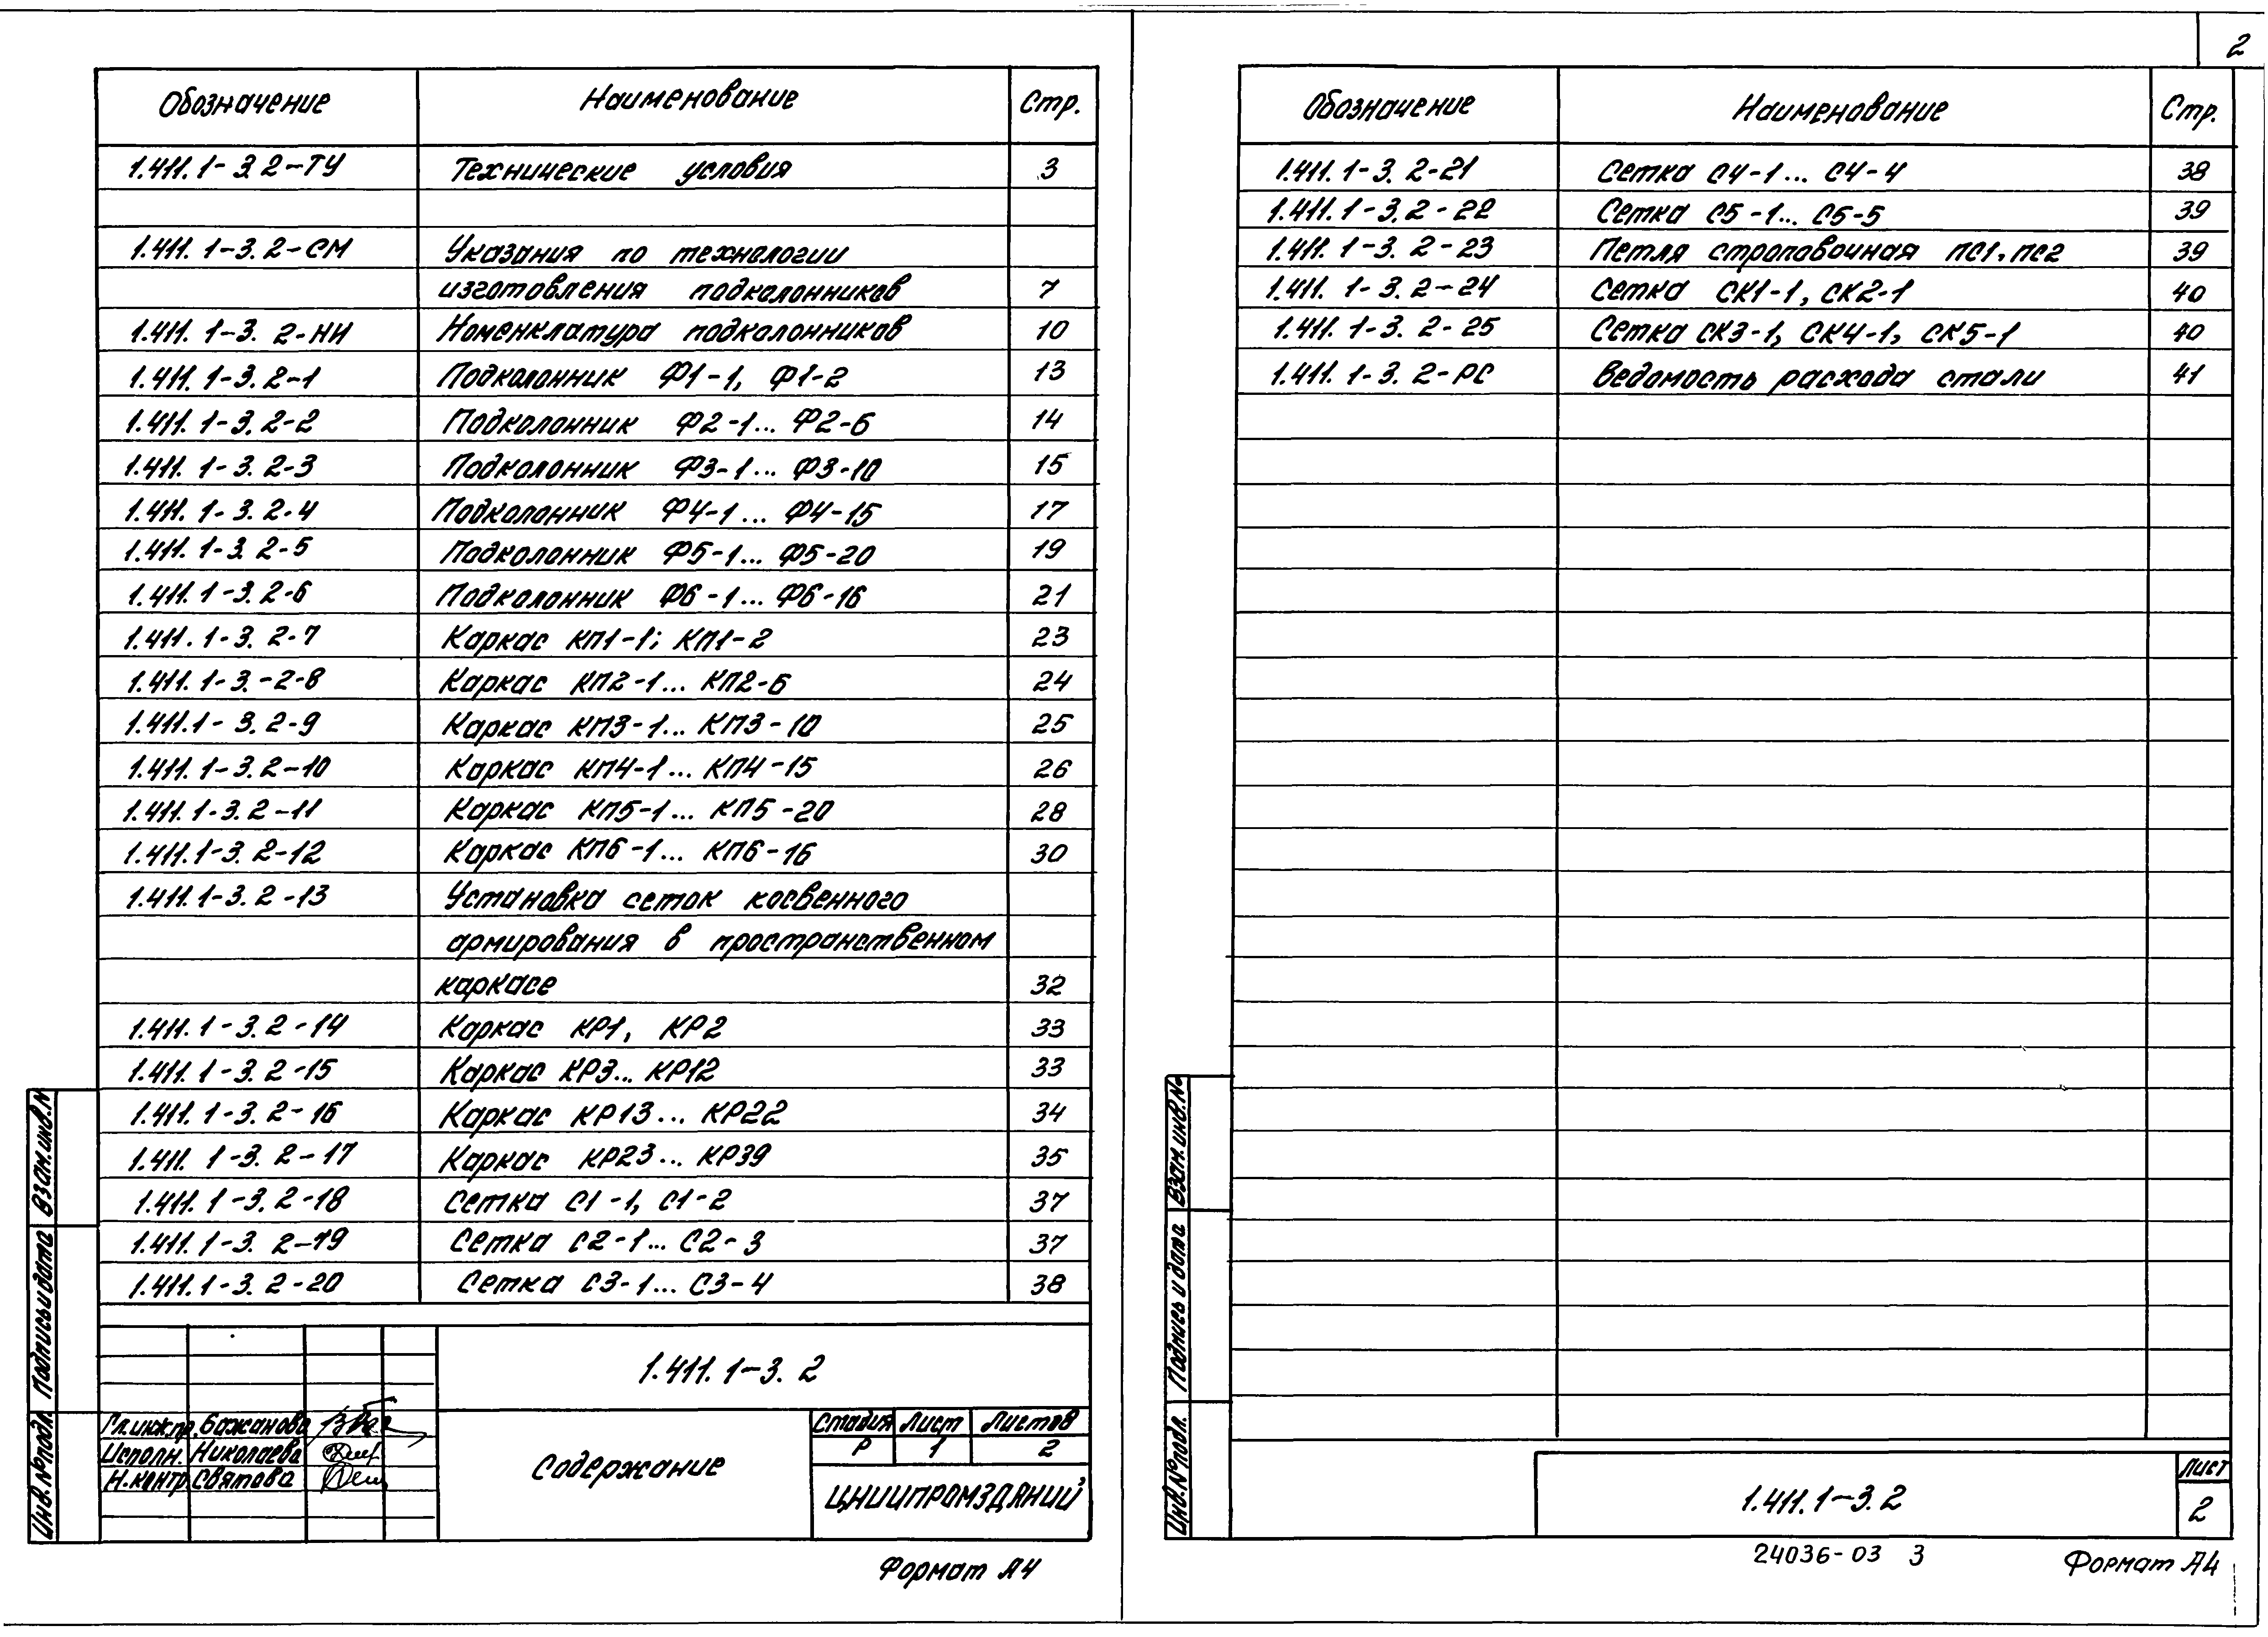 2
Обозначение Наименование Стр.
1.411.1-3.2-ТУ Технические условия 3
1.411.1-3.2-СМ Указания по технологии
изготовления подколонников 7
1.411.1-3.2-НИ Номенклатура подколонников 10
1.411.1-3.2-1 Подколонник Ф1-1, Ф1-2 13
1.411.1-3.2-2 Подколонник Ф2-1... Ф2-6 14
1.411.1-3.2-3 Подколонник Ф3-1... Ф3-10 15
1.411.1-3.2-4 Подколонник Ф4-1... Ф4-15 17
1.411.1-3.2-5 Подколонник Ф5-1... Ф5-20 19
1.411.1-3.2-6 Подколонник Ф6-1... Ф6-16 21
1.411.1-3.2-7 Каркас КП1-1; КП1-2 23
1.411.1-3.-2-8 Каркас КП2-1... КП2-6 24
1.411.1-3.2-9 Каркас КП3-1... КП3-10 25
1.411.1-3.2-10 Каркас КП4-1... КП4-15 26
1.411.1-3.2-11 Каркас КП5-1... КП5-20 28
1.411.1-3.2-12 Каркас КП6-1... КП6-16 30
1.411.1-3.2-13 Установка сеток косвенного
армирования в пространственном
каркасе 32
1.411.1-3.2-14 Каркас КР1, КР2 33
1.411.1-3.2-15 Каркас КР3... КР12 33
1.411.1-3.2-16 Каркас КР13... КР22 34
1.411.1-3.2-17 Каркас КР23... КР39 35
1.411.1-3.2-18 Сетка С1-1, С1-2 37
1.411.1-3.2-19 Сетка С2-1... С2-3 37
1.411.1-3.2-20 Сетка С3-1... С3-4 38
1.411.1-3.2
Гл.инж.пр. Бажанова
Исполн. Николаева
Н.контр. Святова
Содержание
Стадия Лист Листов
Р 1 2
ЦНИИПРОМЗДАНИЙ
Инв.№подл. Подпись и дата Взам.инв.№
Формат А4
Обозначение Наименование Стр.
1.411.1-3.2-21 Сетка С4-1... С4-4 38
1.411.1-3.2-22 Сетка С5-1... С5-5 39
1.411.1-3.2-23 Петля строповочная ПС1, ПС2 39
1.411.1-3.2-24 Сетка СК1-1, СК2-1 40
1.411.1-3.2-25 Сетка СК3-1, СК4-1, СК5-1 40
1.411.1-3.2-РС Ведомость расхода стали 41
Инв.№подл. Подпись и дата Взам.инв.№
1.411.1-3.2
Лист
2
24036-03 3
Формат А4